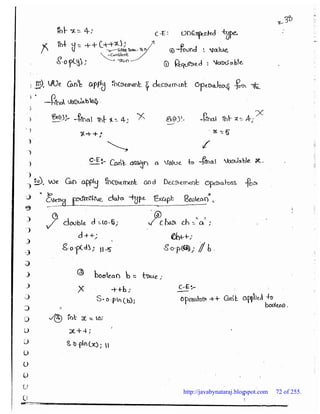 30
int x = 4;
C.E: unexpected type.
X int y = ++(++x);
Constant
found : value
S.o.p(y);
Required : variable
iii). We Can't apply increment & decrement operators for the
final variables
Ex(1):- final int x = 4; X
Ex(2):- final int x = 4; X
x++;
x = 5
✓
C.E:- Can't assign a value to final variable x.
iv). we Can apply increment and Decrement operators for
Every primitive data type Except Boolean.
①
②
✓ double d = 10.5;
✓ char ch = 'a';
d++;
ch++;
S.o.p(d); 11.5
S.o.p( ); // b
③ boolean b = true;
X ++b;
C.E:-
S.o.pln(b);
operator ++ Can't applied to
boolean.
✓④ int x = 10;
x++;
S.o.pln(x); 11
http://javabynataraj.blogspot.com 72 of 255.